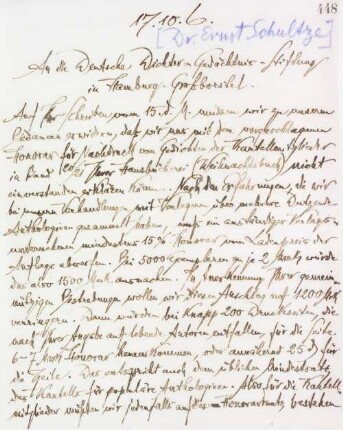 448
17.10.6.
[Dr. Ernst Schultze]
An die Deutsche Dichter-Gedächtnis-Stiftung
in Hamburg-Großborstel.
Auf Ihr Schreiben vom 15. d. M. müssen wir zu unserem
Bedauern erwidern, daß wir uns mit dem vorgeschlagenen
Honorar für Nachdruck von Gedichten der Kartellmitglieder
in Band 20/21 Ihrer Hausbücherei (Weihnachtsbuch) nicht
einverstanden erklären können. Nach den Erfahrungen, die wir
bei unseren Verhandlungen mit Verlegern über mehrere Dutzende
Anthologien gesammelt haben, muß ein anständiger Verlags-
unternehmen mindestens 15% Honorar vom Ladenpreis der
Auflage abwerfen. Bei 5000 Exemplaren zu je 2 Mark würde
das also 1500 Mark ausmachen. In Anerkennung Ihrer gemein-
nützigen Bestrebungen wollen wir diesen Anschlag auf 1200 Mk
verringern. Dann würden bei knapp 200 Druckseiten, die
nach Ihrer Angabe auf lebende Autoren entfallen, für die Seite
6-7 Mark Honorar herauskommen, oder annähernd 25 d für
die Zeile. Das entspricht auch dem üblichen Mindestsatz
des Kartells für populäre Anthologieen. Also für die Kartell-
mitglieder müßten wir jedenfalls auf diesem Honorarsatz bestehen